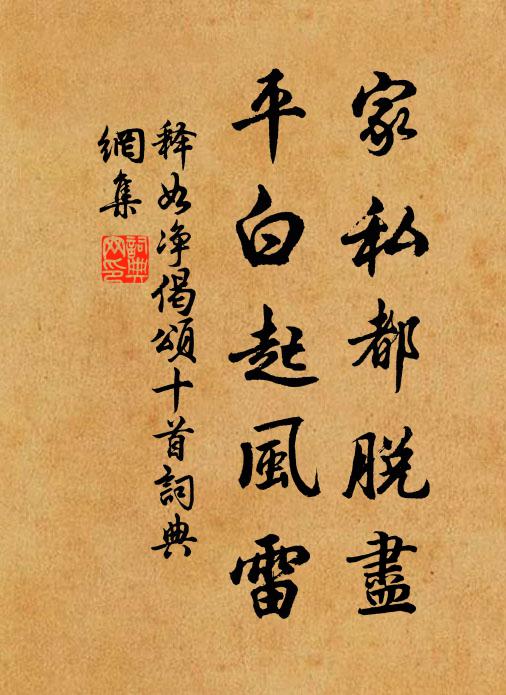 家私都脱盡
平白起風雷
释如净偈頌十首詞典
網集
詞典
网印